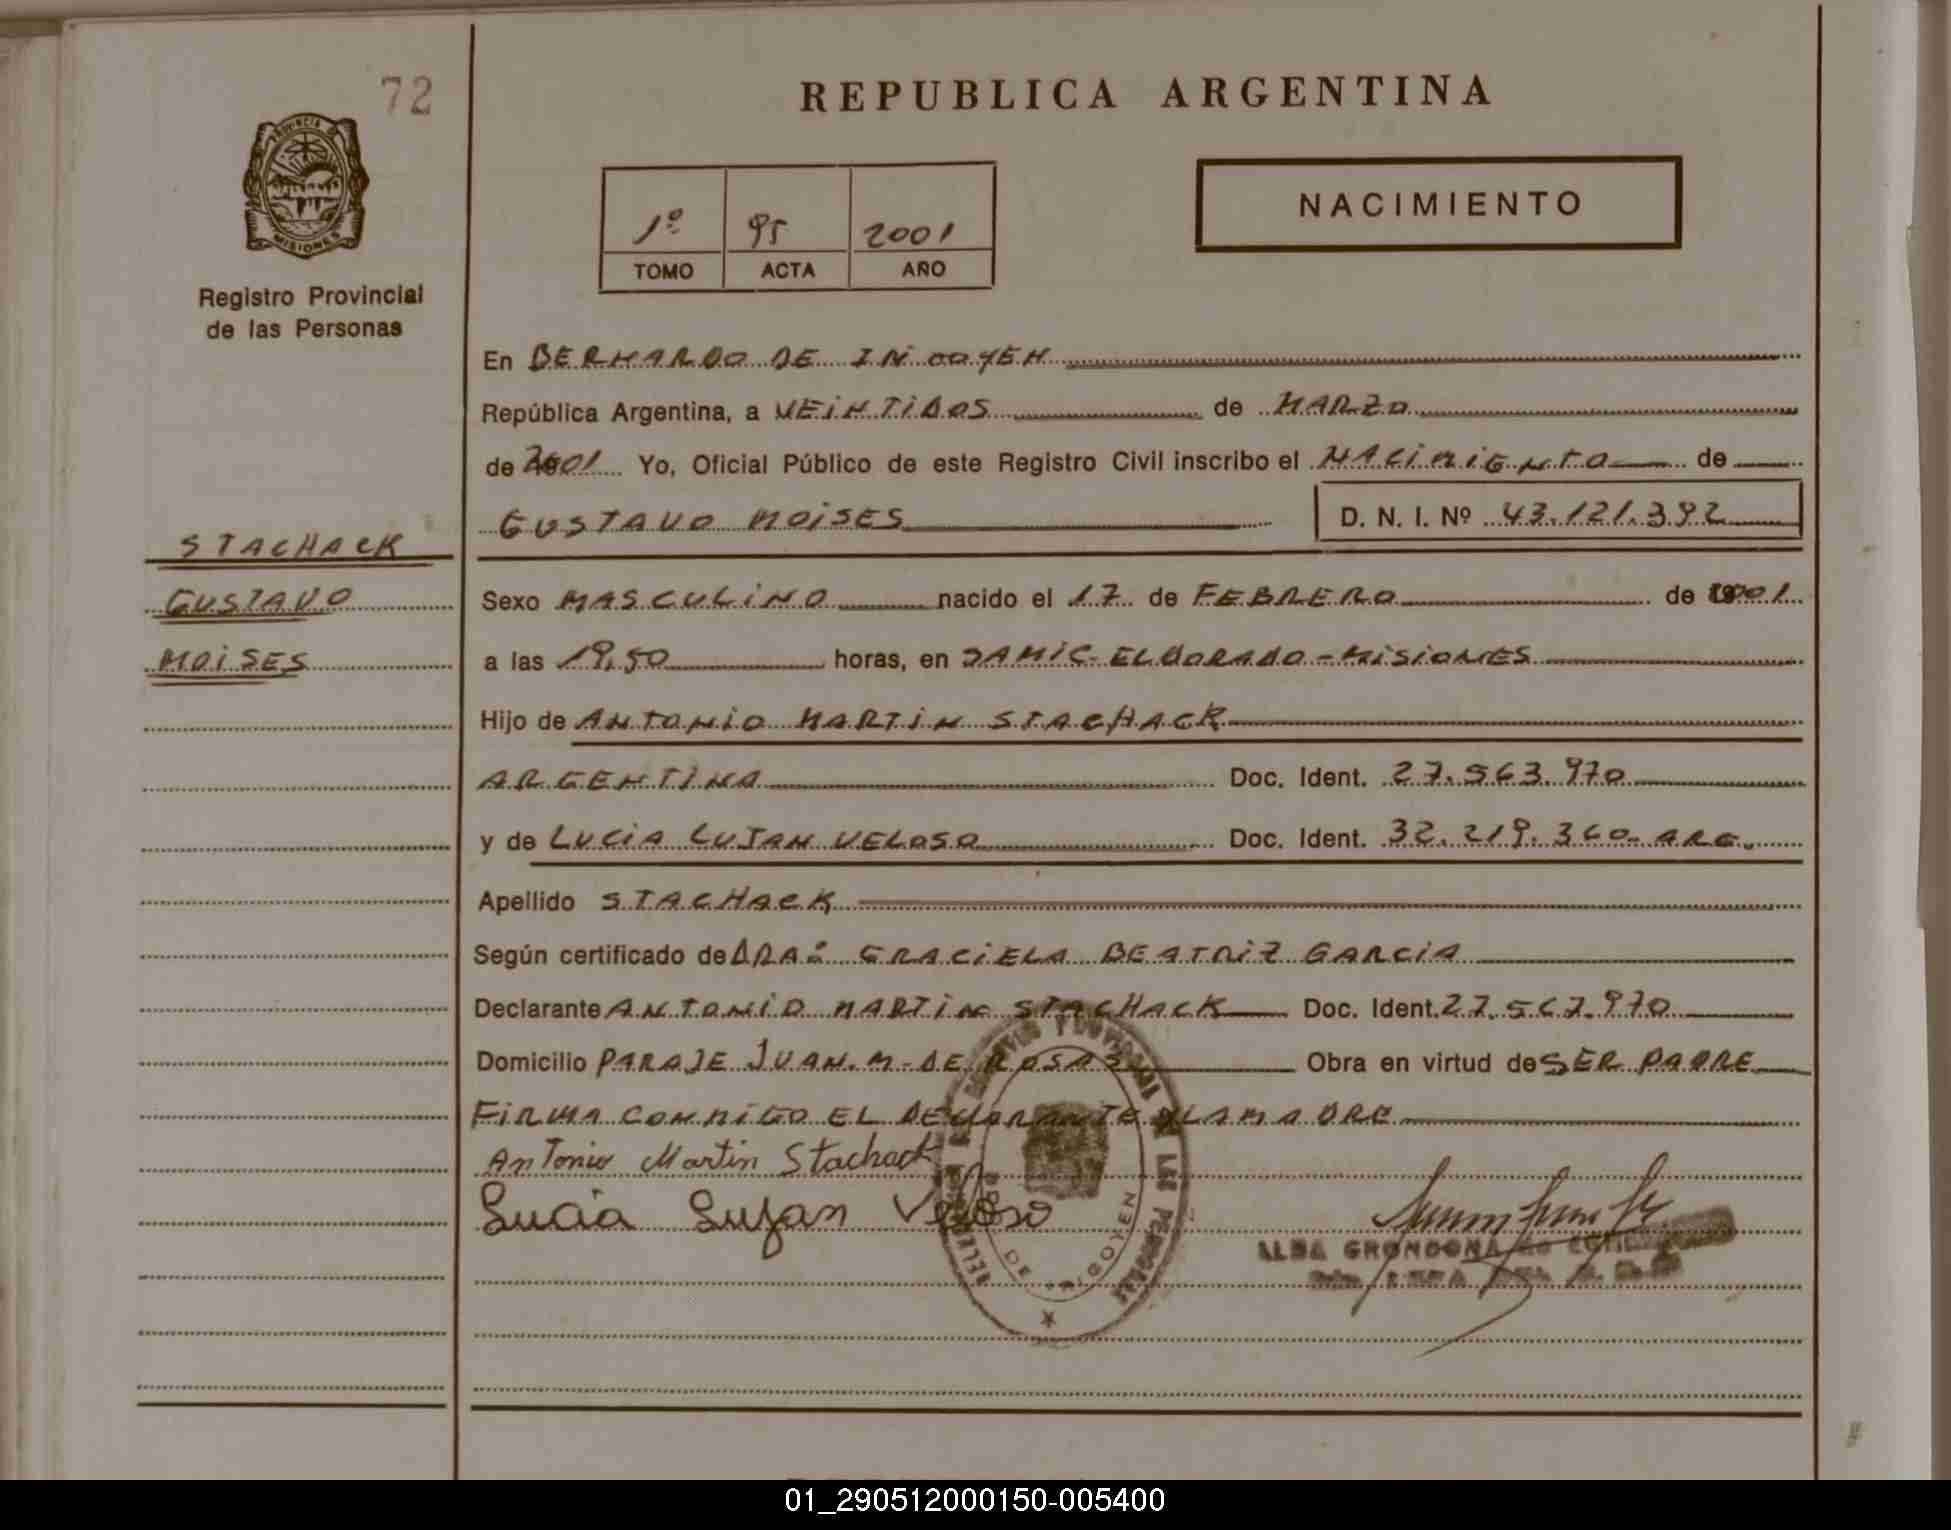 72
REPUBLICA ARGENTINA
PROVINCIA DE
MISIONES
Registro Provincial
de las Personas
1º 95 2001
TOMO ACTA AÑO
NACIMIENTO
En BERNARDO DE IRIGOYEN
República Argentina, a VEINTIDOS de MARZO
de 2001 Yo, Oficial Público de este Registro Civil inscribo el NACIMIENTO de
GUSTAVO MOISES D. N. I. Nº 43.121.392
STACHACK
GUSTAVO
MOISES
Sexo MASCULINO nacido el 17 de FEBRERO de 2001
a las 19,50 horas, en SAMIC-ELDORADO-MISIONES
Hijo de ANTONIO MARTIN STACHACK
ARGENTINA Doc. Ident. 27.563.970
y de LUCIA LUJAN VELOSO Doc. Ident. 32.219.360- ARG.
Apellido STACHACK
Según certificado de DRA: GRACIELA BEATRIZ GARCIA
Declarante ANTONIO MARTIN STACHACK Doc. Ident. 27.563.970
Domicilio PARAJE JUAN.M-DE ROSAS Obra en virtud de SER PADRE
FIRMA CONMIGO EL DECLARANTE Y LA MADRE
Antonio Martin Stachack
Lucia Lujan Veloso
DE IRIGOYEN
DE LAS PERSONAS
ALBA GRONDONA de
01_290512000150-005400